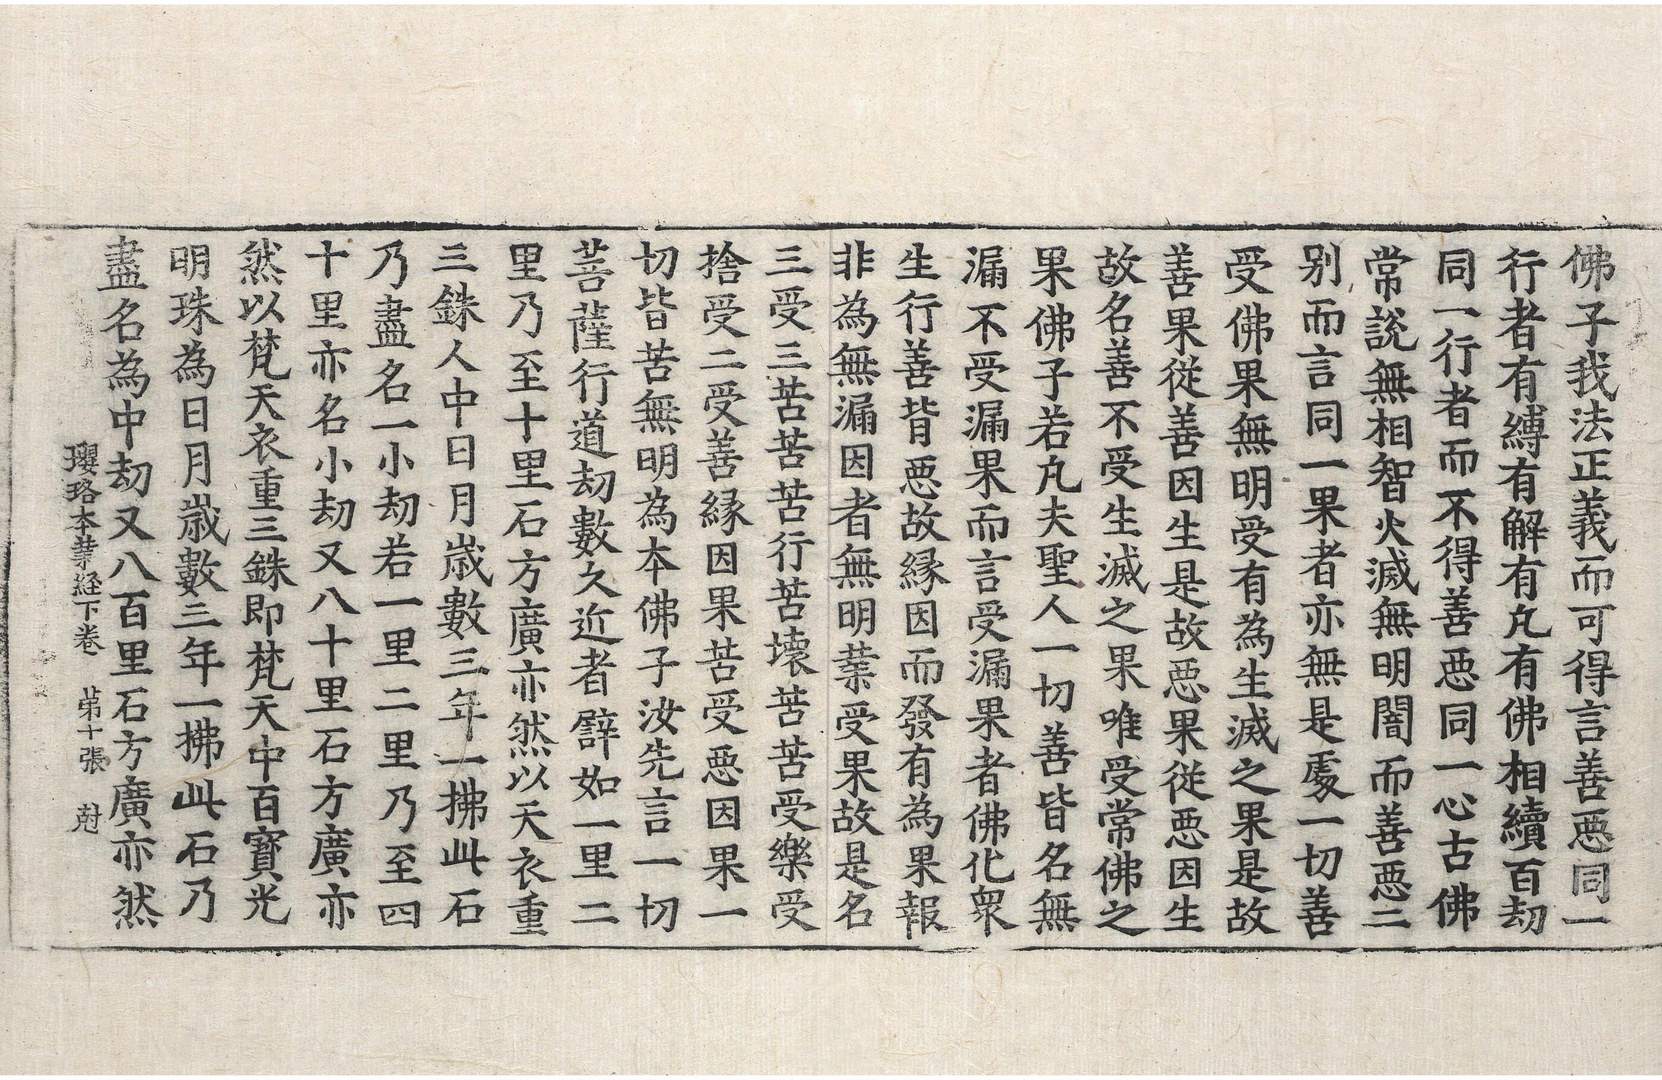 佛子我法正義而可得言善惡同一
行者有縛有解有凡有佛相續百劫
同一行者而不得善惡同一心古佛
常說無相智火滅無明闇而善惡二
别而言同一果者亦無是處一切善
受佛果無明受有為生滅之果是故
善果從善因生是故惡果從惡因生
故名善不受生滅之果唯受常佛之
果佛子若凡夫聖人一切善皆名無
漏不受漏果而言受漏果者佛化衆
生行善背惡故緣因而發有為果報
非為無漏因者無明業受果故是名
三受三苦苦苦行苦壞苦苦受樂受
捨受二受善緣因果苦受惡因果一
切皆苦無明為本佛子汝先言一切
菩薩行道劫數久近者譬如一里二
里乃至十里石方廣亦然以天衣重
三銖人中日月歲數三年一拂此石
乃盡名一小劫若一里二里乃至四
十里亦名小劫又八十里石方廣亦
然以梵天衣重三銖即梵天中百寶光
明珠為日月歲數三年一拂此石乃
盡名為中劫又八百里石方廣亦然
瓔珞本業経下卷　苐十張　尅